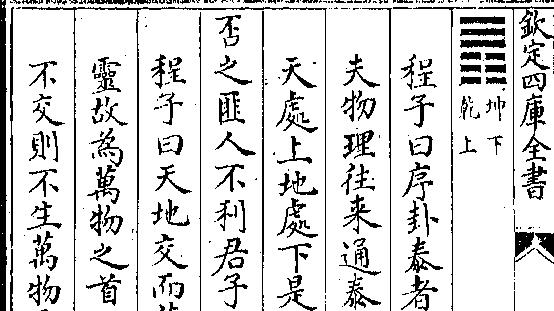 欽定四庫全書
坤下
乾上
程子曰序卦泰者
夫物理往来通泰
天處上地處下是
否之匪人不利君子
程子曰天地交而
靈故為萬物之首
不交則不生萬物